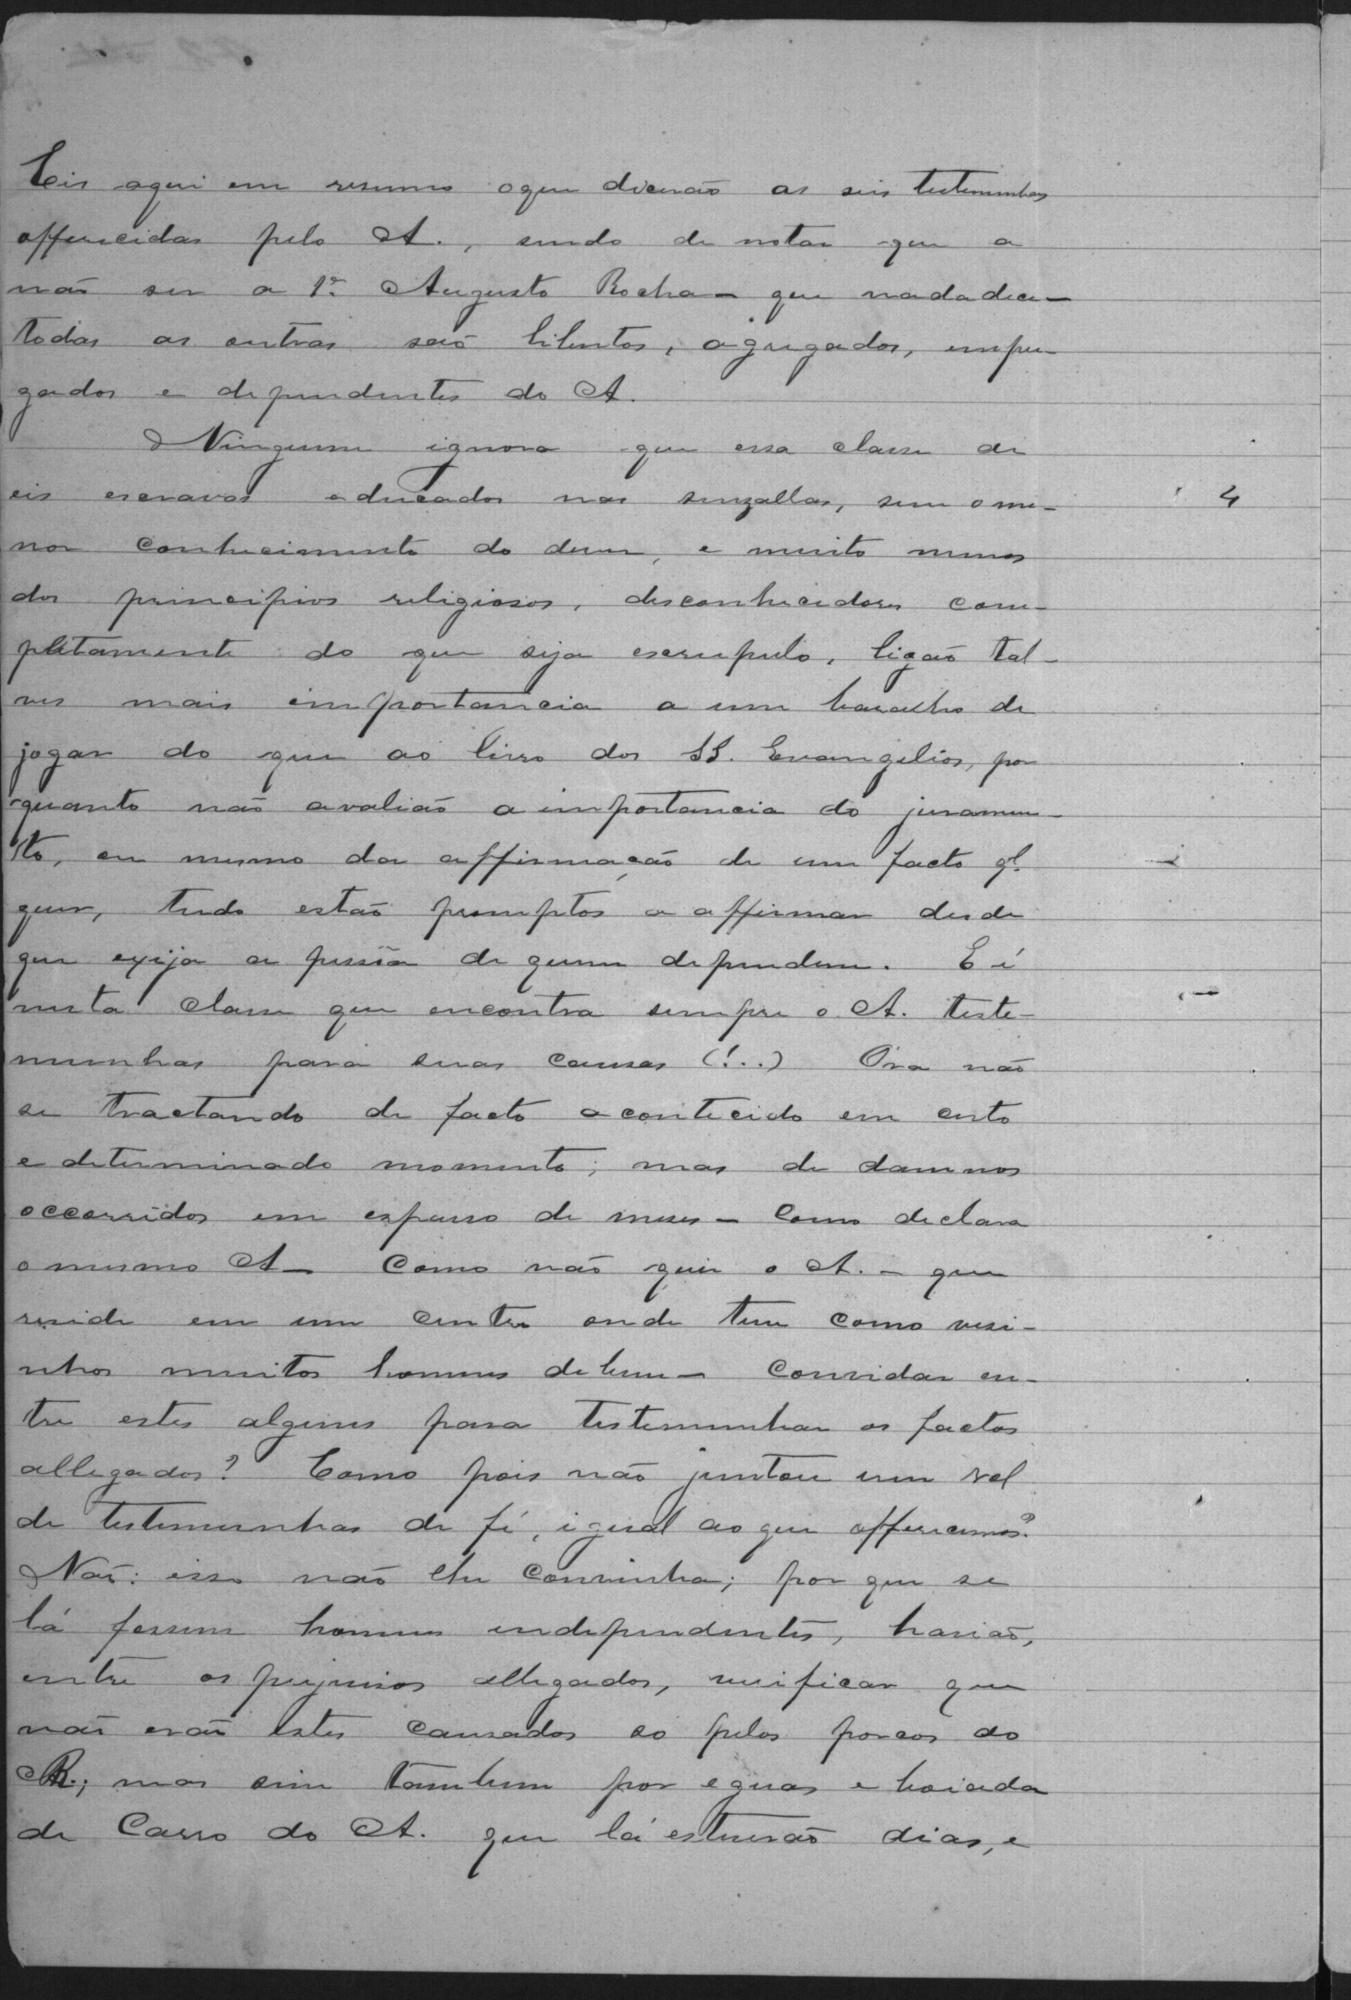 Eis aqui em resumo o que diserão as seis testemunhas
offerecidas pelo A., sendo de notar que a
não ser a 1ª Augusto Rocha — que nada dice —
todas as outras são libertos, agregados, empre
gados e dependentes do A.
Ninguem ignora que essa classe de
eis escravos educados nas senzallas, sem o me-
nor conhecimento do dever, e muito menos
dos principios religiosos, desconhecedores com-
pletamente do que seja escrupulo, ligão tal-
ves mais importancia a um baralho de
jogar do que ao livro dos SS. Evangelios, por
quanto não avalião a importancia do juramen-
to, ou mesmo da affirmação de um facto ql.
quer, tudo estão promptos a affirmar desde
que exija a pessôa de quem dependem. E é
nesta classe que encontra sempre o A. teste-
munhas para suas causas (!..) Ora não
se tractando de facto acontecido em certo
e determinado momento; mas de damnos
occorridos em espasso de meses — como declara
o mesmo A — Como não quis o A. — que
reside em um centro onde tem como visi-
nhos muitos homens de bem — convidar en-
tre estes alguns para testemunhar os factos
allegados? Como pois não juntou um rol
de testemunhas de fé, igual ao que offerecemos?
Não: isso não lhe convinha; por que se
lá fossem homens independentes, havião,
entre os prejuisos allegados, verificar que
não erão estes causados só pelos porcos do
R.; mas sim tambem por eguas e boiada
de Carro do A. que lá estiverão dias, e
4